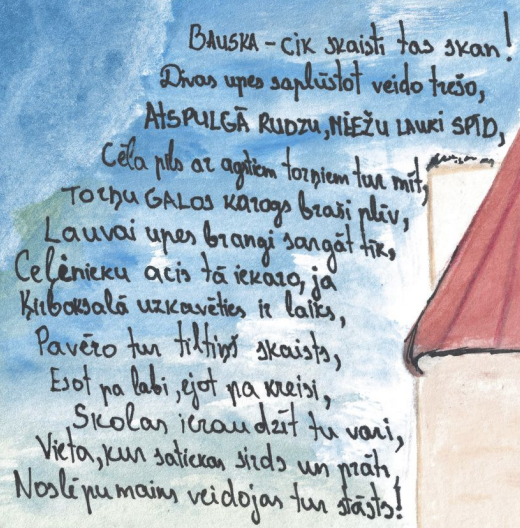 BAUSKA – cik skaisti tas skan!
Divas upes saplūstot veido trešo,
ATSPULGĀ RUDZU, MIEŽU LAUKI SPĪD,
Cēla pils ar augstiem torņiem tur mīt,
TORŅU GALOS KAROGS braši plīv,
Lauvai upes brangi sargāt tīk,
Ceļinieku acis tā iekaro, ja
Ķirboksalā uzkavēties ir laiks,
Pavēro tur tiltiņš skaists,
Esot pa labi, ejot pa kreisi,
Skolas ieraudzīt tu vari,
Vieta, kur satiekas sirds un prāti,
Noslēpumains veidojas tur stāsts!